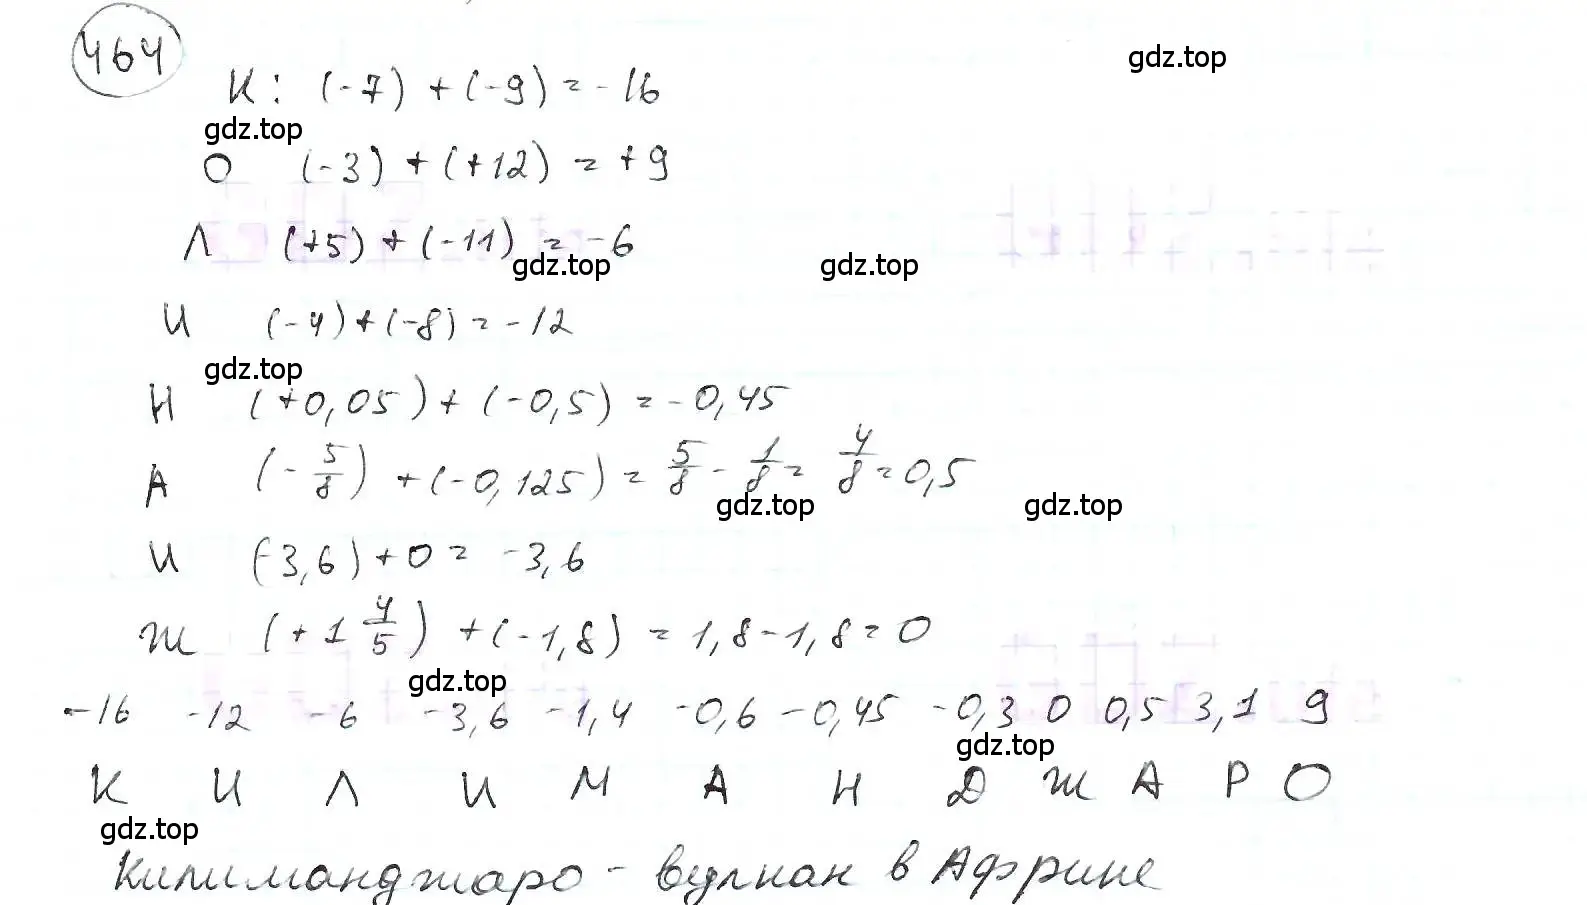 464
gdz.top
К: (-7) + (-9) = -16
gdz.top
О (-3) + (+12) = +9
Л (+5) + (-11) = -6
gdz.top gdz.top
И (-4) + (-8) = -12
gdz.top
Н (+0,05) + (-0,5) = -0,45
А (-5/8) + (-0,125) = 5/8 - 1/8 = 4/8 = 0,5
gdz.top gdz.top
И (-3,6) + 0 = -3,6
Ж (+1 4/5) + (-1,8) = 1,8 - 1,8 = 0
gdz.top
-16 -12 -6 -3,6 -1,4 -0,6 -0,45 -0,3 0 0,5 3,1 9
gdz.top
К И Л И М А Н Д Ж А Р О
gdz.top
Килиманджаро - вулкан в Африке